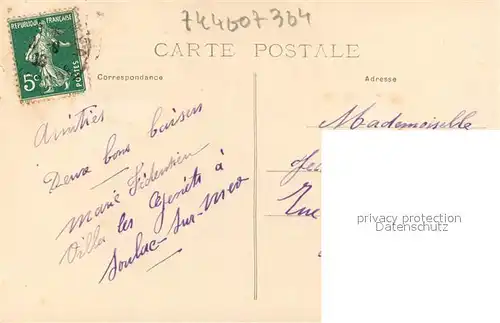 744607304
RÉPUBLIQUE FRANÇAISE
5c
POSTES
CARTE POSTALE
Correspondance
Adresse
Amitiés
Deux bons baisers
Marie
Villa les Genêts à
Soulac-sur-Mer
Mademoiselle
Rue
privacy protection
Datenschutz